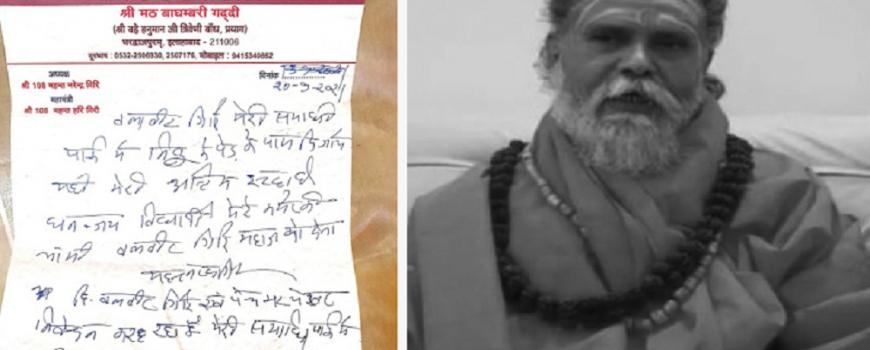 श्री मठ बाघम्बरी गद्दी
(श्री बड़े हनुमान जी त्रिवेणी बाँध, प्रयाग)
भरद्वाजपुरम्, इलाहाबाद - 211006
दूरभाष : 0532-2506930, 2507176, मोबाइल : 9415349662
अध्यक्ष
दिनांक
श्री 108 महन्त नरेन्द्र गिरि
20-9-2021
महामंत्री
श्री 108 महन्त हरि गिरी
बलवीर गिरि मेरी समाधि
पार्क में के पेड़ के पास
यही मेरी अन्तिम इच्छा है
धनन्जय विद्यार्थी मेरे कमरे की
बलवीर गिरि महाराज को देना
बलवीर गिरि एवं पंच परमेश्वर
निवेदन कर रहा मेरी समाधि पार्क में